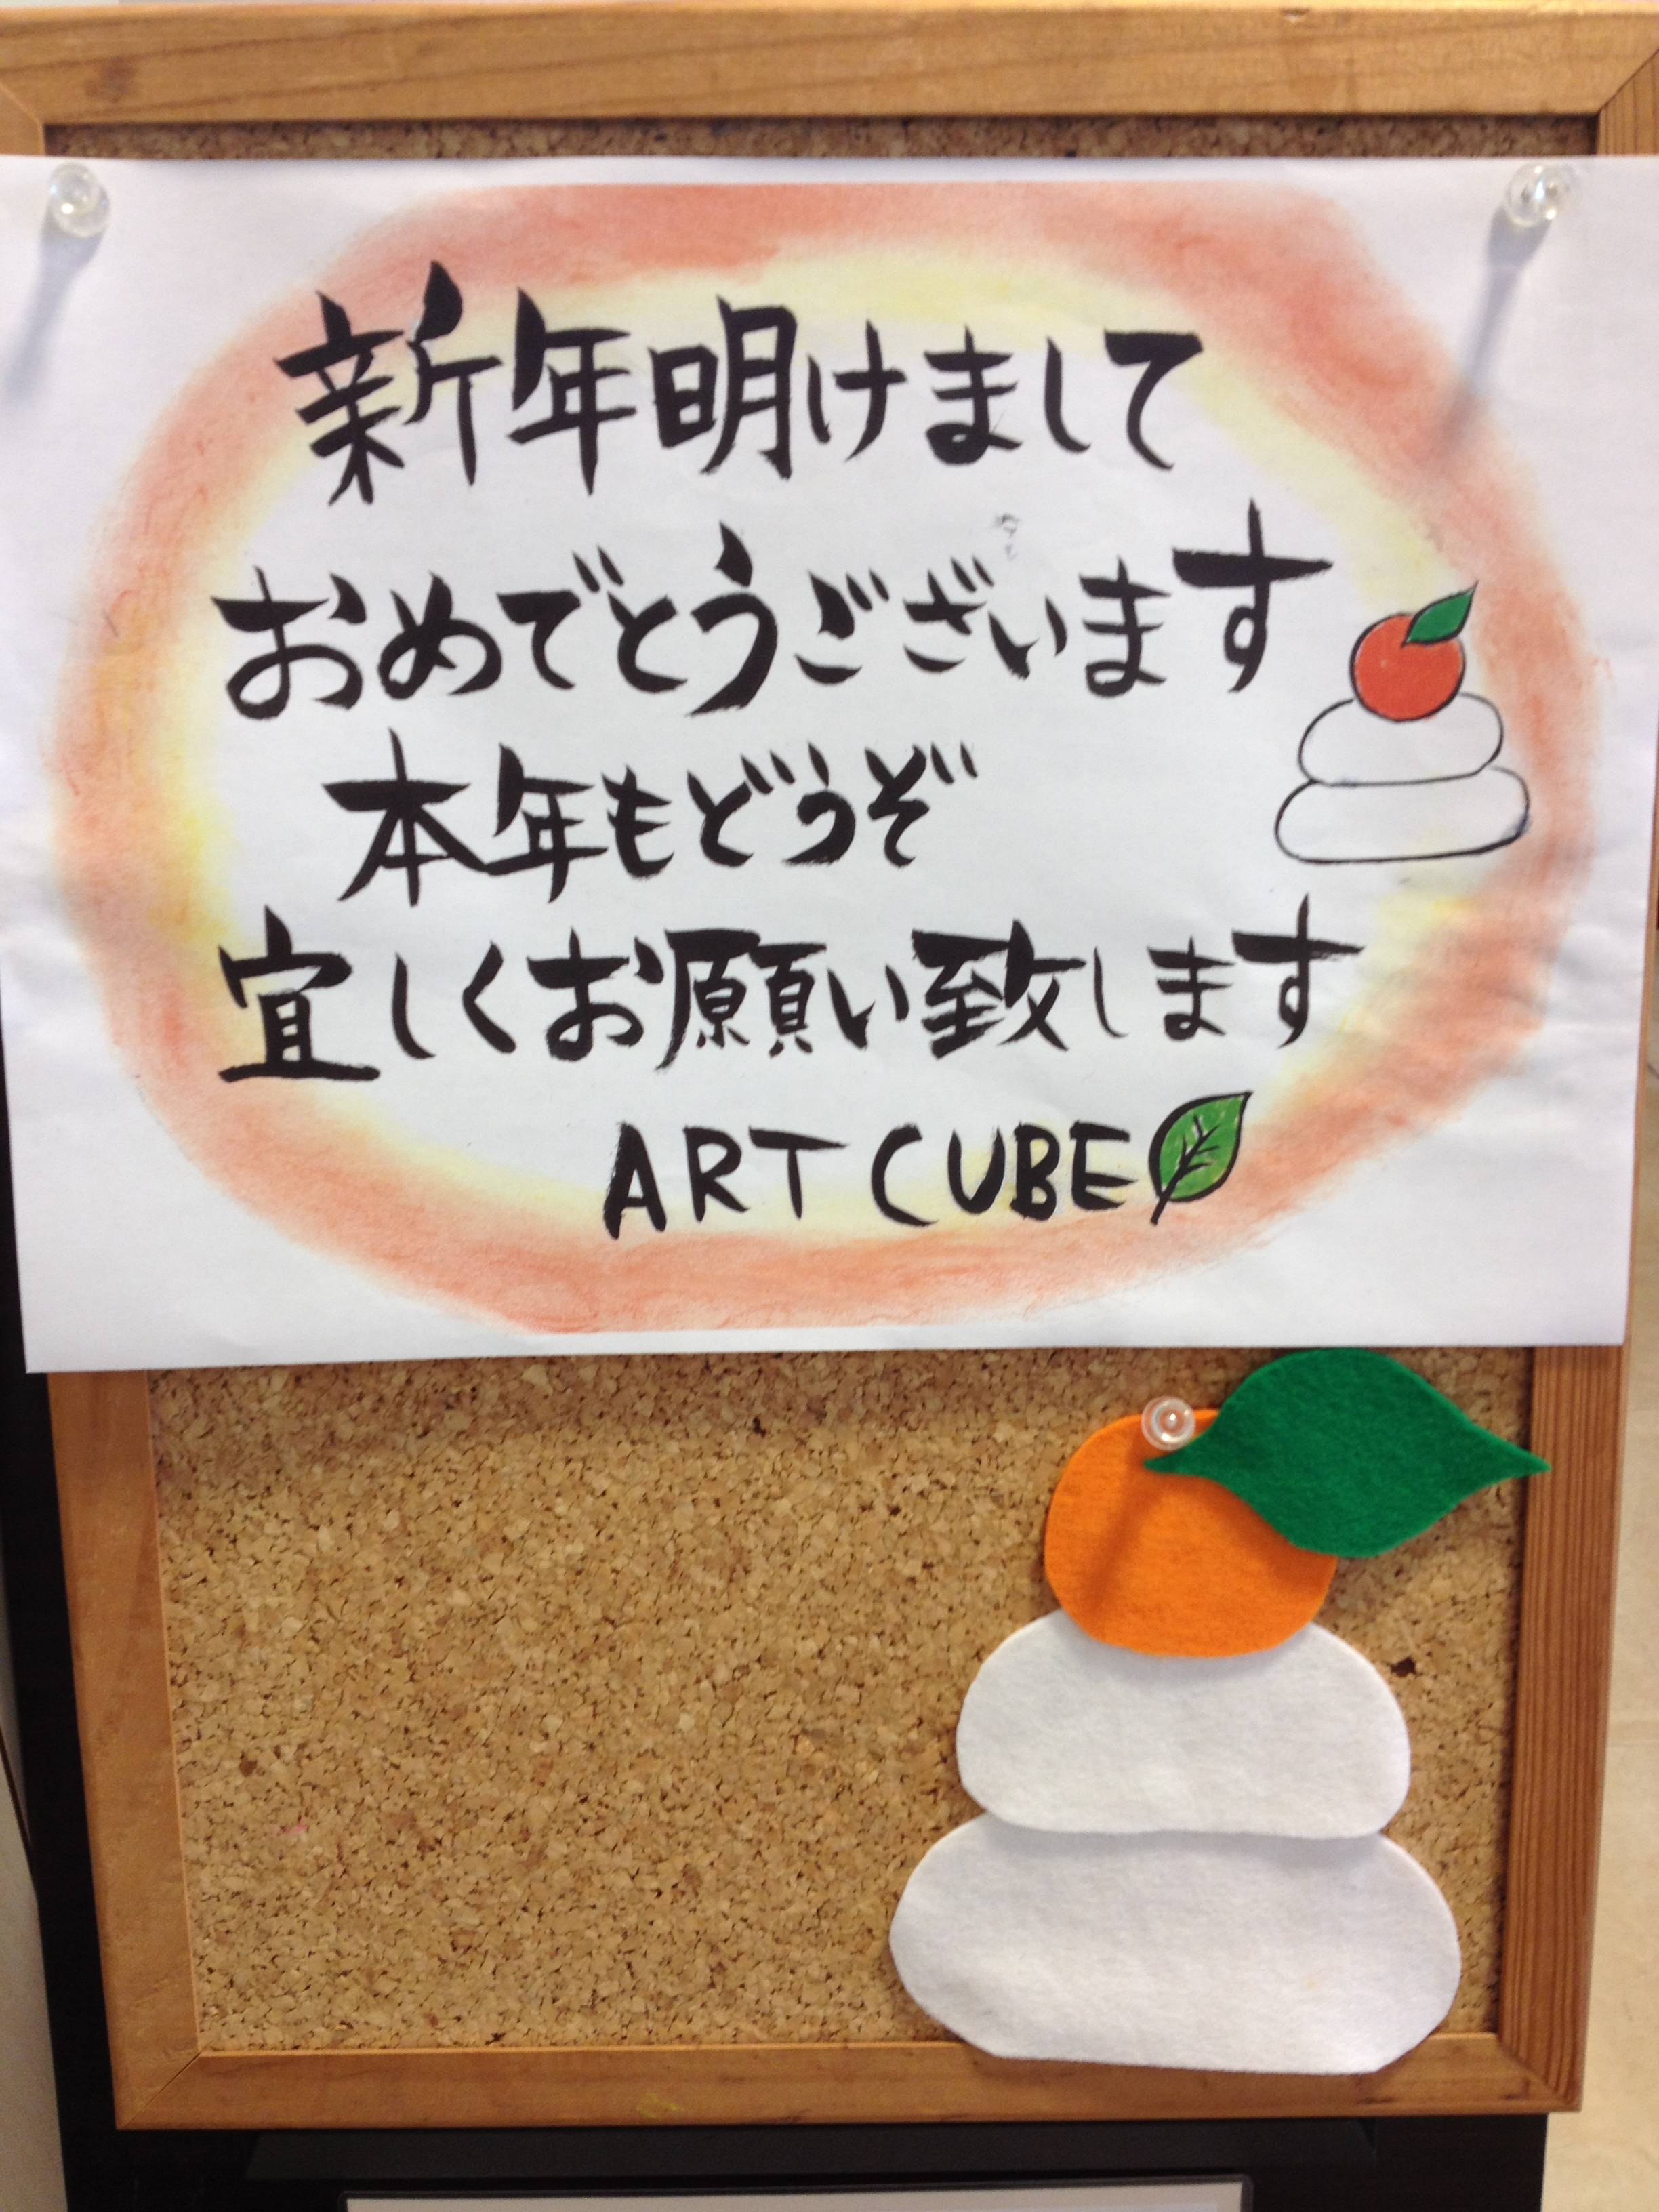 新年明けまして
おめでとうございます
本年もどうぞ
宜しくお願い致します
ART CUBE